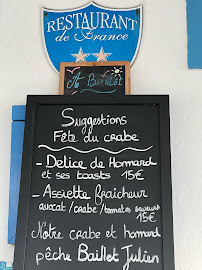 RESTAURANT
de France
A Bientôt
Suggestions
Fête du crabe
- Delice de Homard
et ses toasts 15€
- Assiette fraicheur
avocat/crabe/tomates saveurs
15€
Notre crabe et homard
pêche Baillet Julien